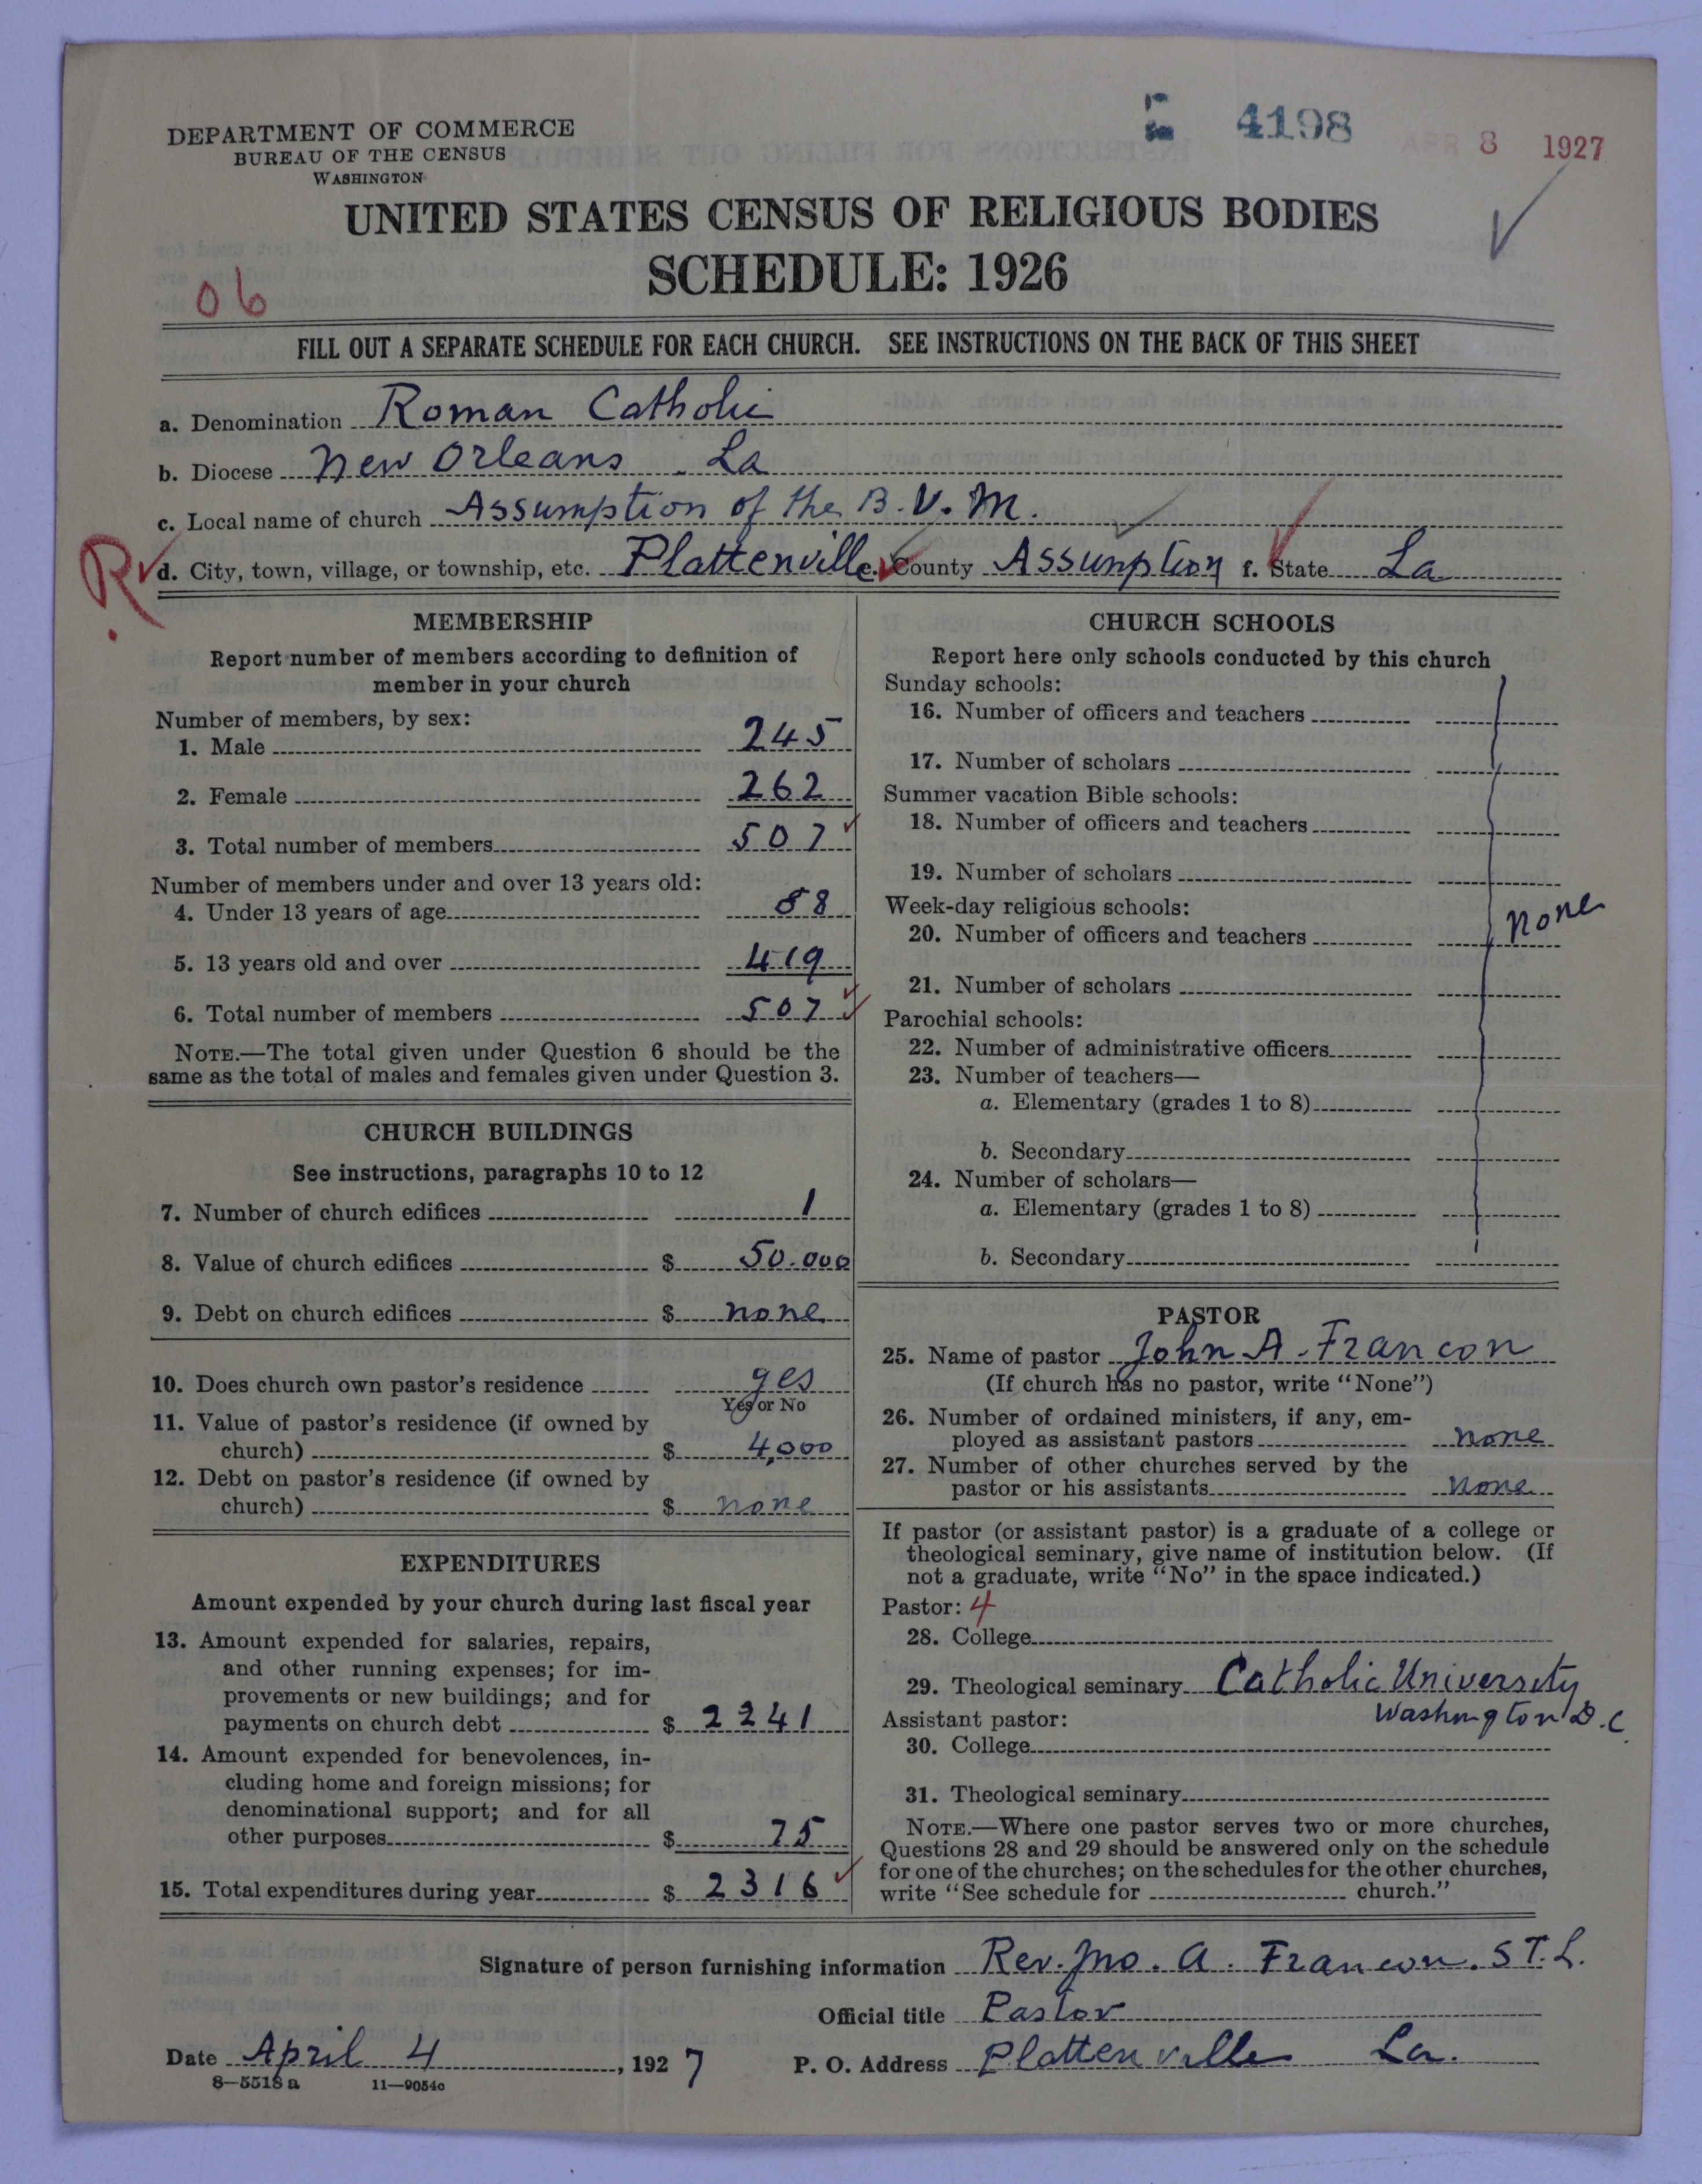 4198
APR 8 1927
DEPARTMENT OF COMMERCE
BUREAU OF THE CENSUS
WASHINGTON
UNITED STATES CENSUS OF RELIGIOUS BODIES
SCHEDULE: 1926
06
FILL OUT A SEPARATE SCHEDULE FOR EACH CHURCH. SEE INSTRUCTIONS ON THE BACK OF THIS SHEET
a. Denomination Roman Catholic
b. Diocese New Orleans La
c. Local name of church Assumption of the B.V.M.
R d. City, town, village, or township, etc. Plattenville e. County Assumption f. State La
MEMBERSHIP
Report number of members according to definition of
member in your church
Number of members, by sex:
1. Male 245
2. Female 262
3. Total number of members 507
Number of members under and over 13 years old:
4. Under 13 years of age 88
5. 13 years old and over 419
6. Total number of members 507
NOTE.—The total given under Question 6 should be the
same as the total of males and females given under Question 3.
CHURCH BUILDINGS
See instructions, paragraphs 10 to 12
7. Number of church edifices 1
8. Value of church edifices $ 50.000
9. Debt on church edifices $ none
10. Does church own pastor's residence yes
Yes or No
11. Value of pastor's residence (if owned by
church) $ 4,000
12. Debt on pastor's residence (if owned by
church) $ none
EXPENDITURES
Amount expended by your church during last fiscal year
13. Amount expended for salaries, repairs,
and other running expenses; for im-
provements or new buildings; and for
payments on church debt $ 2241
14. Amount expended for benevolences, in-
cluding home and foreign missions; for
denominational support; and for all
other purposes $ 75
15. Total expenditures during year $ 2316
CHURCH SCHOOLS
Report here only schools conducted by this church
Sunday schools:
16. Number of officers and teachers
17. Number of scholars
Summer vacation Bible schools:
18. Number of officers and teachers
19. Number of scholars
Week-day religious schools:
20. Number of officers and teachers none
21. Number of scholars
Parochial schools:
22. Number of administrative officers
23. Number of teachers—
a. Elementary (grades 1 to 8)
b. Secondary
24. Number of scholars—
a. Elementary (grades 1 to 8)
b. Secondary
PASTOR
25. Name of pastor John A. Francon
(If church has no pastor, write "None")
26. Number of ordained ministers, if any, em-
ployed as assistant pastors none
27. Number of other churches served by the
pastor or his assistants none
If pastor (or assistant pastor) is a graduate of a college or
theological seminary, give name of institution below. (If
not a graduate, write "No" in the space indicated.)
Pastor: 4
28. College
29. Theological seminary Catholic University
Assistant pastor: Washington D.C.
30. College
31. Theological seminary
NOTE.—Where one pastor serves two or more churches,
Questions 28 and 29 should be answered only on the schedule
for one of the churches; on the schedules for the other churches,
write "See schedule for church."
Signature of person furnishing information Rev. Jno. A. Francon. S.T.L.
Official title Pastor
Date April 4, 1927 P. O. Address Plattenville La.
8—5518 a 11—9054c